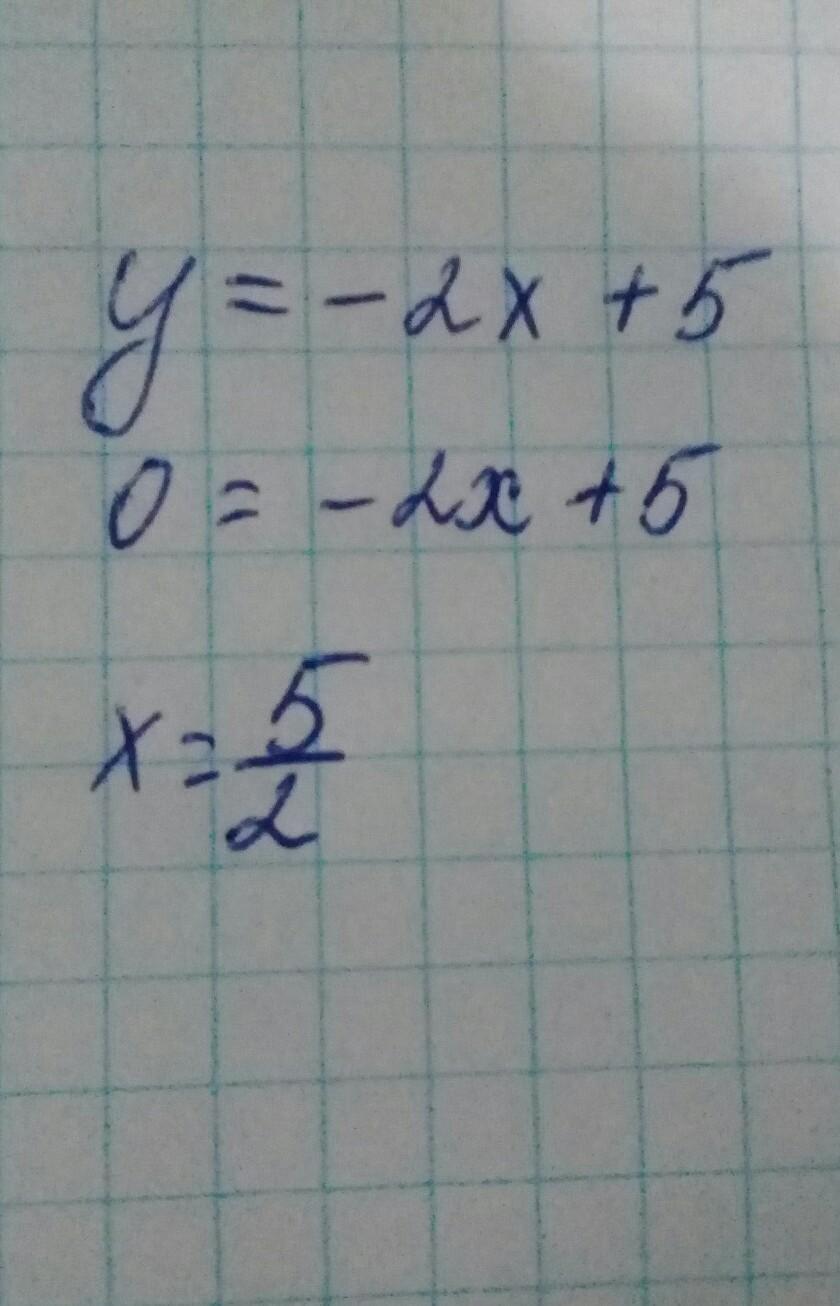 y = -2x + 5
0 = -2x + 5
x = 5/2